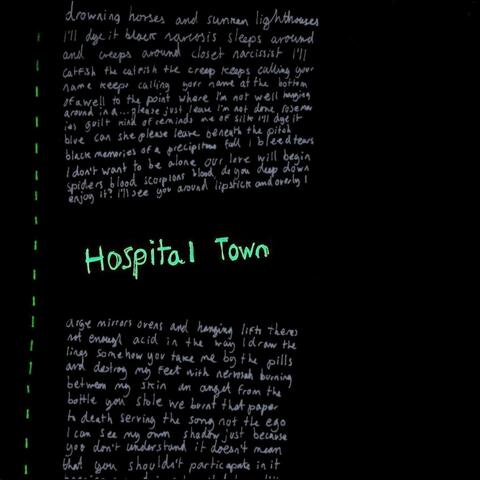 drowning horses and sunken lighthouses
I'll dye it black narcosis sleeps around
and creeps around closet narcissist I'll
catfish the catfish the creep keeps calling your
name keeps calling your name at the bottom
of a well to the point where I'm not well hanging
around in a... please just leave I'm not done, rosemar
ies guilt kind of reminds me of silk I'll dye it
blue can she please leave beneath the pitch
black memories of a precipitous fall I bleed tears
I don't want to be alone our love will begin
spiders blood scorpions blood do you deep down
enjoy it? I'll see you around lipstick and overly I
Hospital Town
large mirrors ovens and hanging lifts theres
not enough acid in the way I draw the
lines somehow you take me by the pills
and destroy my feet with burning
between my skin an angel from the
bottle you stole we burnt that paper
to death serving the song not the ego
I can see my own shadow just because
you don't understand it doesn't mean
that you shouldn't participate in it